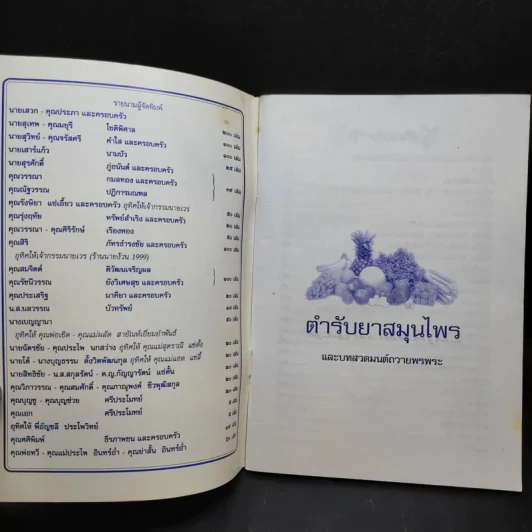 รายนามผู้จัดพิมพ์
นายเสวก - คุณประภา และครอบครัว
นายสุเทพ - คุณมยุรี โชติพิศาล ๒๐๐ เล่ม
นายสุวิทย์ - คุณจรัสศรี คำไส และครอบครัว ๑๐๐ เล่ม
นายเสาร์แก้ว นามบัว ๑๐๐ เล่ม
นายสุรศักดิ์ ภู่อนันต์ และครอบครัว ๒๕ เล่ม
คุณวรรณา กมลทอง และครอบครัว
คุณณัฐวรรณ ปฏิการมณฑล ๓๕ เล่ม
คุณรังษิยา แซ่เอี้ยว และครอบครัว อุทิศให้เจ้ากรรมนายเวร
คุณรุ่งฤทัย ทรัพย์สำเริง และครอบครัว ๕๐ เล่ม
คุณวรรณา - คุณศิริรักษ์ เรืองทอง ๒๐ เล่ม
คุณสิริ ภัทรธำรงชัย และครอบครัว ๕๐ เล่ม
อุทิศให้เจ้ากรรมนายเวร (ร้านนายง้วน 1999)
คุณสมจิตต์ ติวัฒนเจริญผล
คุณรัชนีวรรณ ยังวิเศษสุข และครอบครัว ๑๐๐ เล่ม
คุณประเสริฐ มาคียา และครอบครัว ๒๐ เล่ม
น.ส.นลวรรณ บัวทรัพย์ ๑๐ เล่ม
นางเบญญาภา
อุทิศให้ คุณพ่อเชิด - คุณแม่ผลัด สายัณห์เยี่ยมอำพันธ์
นายฉัตรชัย - คุณประไพ นกสว่าง อุทิศให้ คุณแม่สุดราณี แซ่ตั้ง
นายโต้ - นางบุญธรรม ตั้งวิตพัฒนกุล อุทิศให้ คุณแม่แฉล แซ่ลี้
นายสิทธิชัย - น.ส.สกุลรัตน์ - ด.ญ.กัญญารัตน์ แซ่ตั้น
คุณวิภาวรรณ - คุณสมศักดิ์ - คุณกาญพงศ์ ชีวพุฒิสกุล
คุณบุญชู - คุณบุญช่วย ศรีประโมทย์
คุณเอก ศรีประโมทย์
อุทิศให้ พี่อัญชลี ประไพวิทย์
คุณศศิพิมพ์ ธีรภาพชน และครอบครัว
คุณพ่อทวี - คุณแม่ประไพ อินทร์ถ่ำ - คุณย่าลั้น อินทร์ถ่ำ ๕๐ เล่ม
ตำรับยาสมุนไพร
และบทสวดมนต์ถวายพรพระ